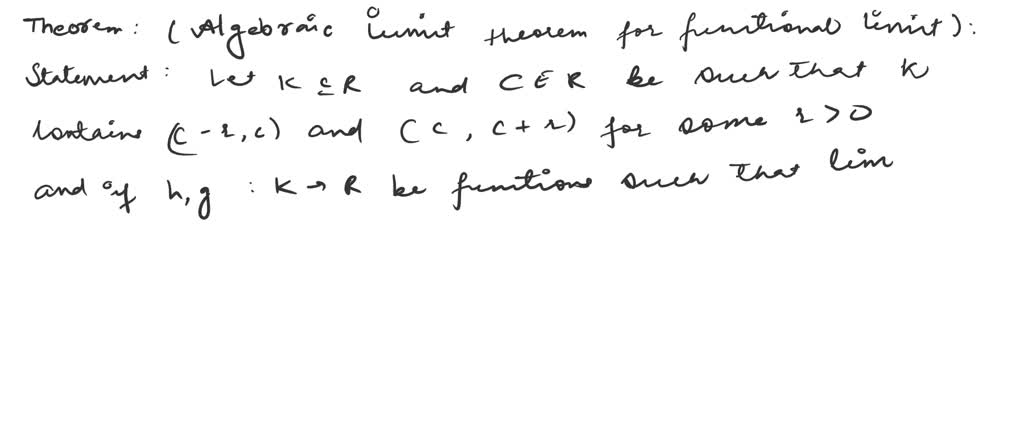 Theorem: (Algebraic limit theorem for functional limit):
Statement: Let K ⊆ R and C ∈ R be such that K
contains (c - r, c) and (c, c + r) for some r > 0
and if h, g : K → R be functions such that lim